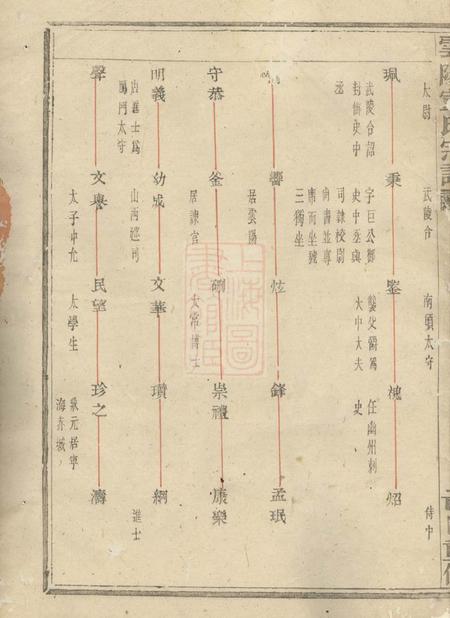 太尉
武陵令
南頓太守
侍中
珮
武陵令詔
封御史中
丞
秉
字巨公御
史中丞與
司隸校尉
尚書並專
席而坐號
三獨坐
鋻
襲父爵為
大中大夫
槐
任幽州刺
史
炤
響
居雲陽
炫
鋒
孟珉
守恭
釜
居諫官
太常博士
崇禮
康樂
明義
內進士為
鴈門太守
幼成
山西巡司
文華
瓚
綱
進士
聲
文
太子中允
民望
太學生
珍之
海赤城
濤
上海圖